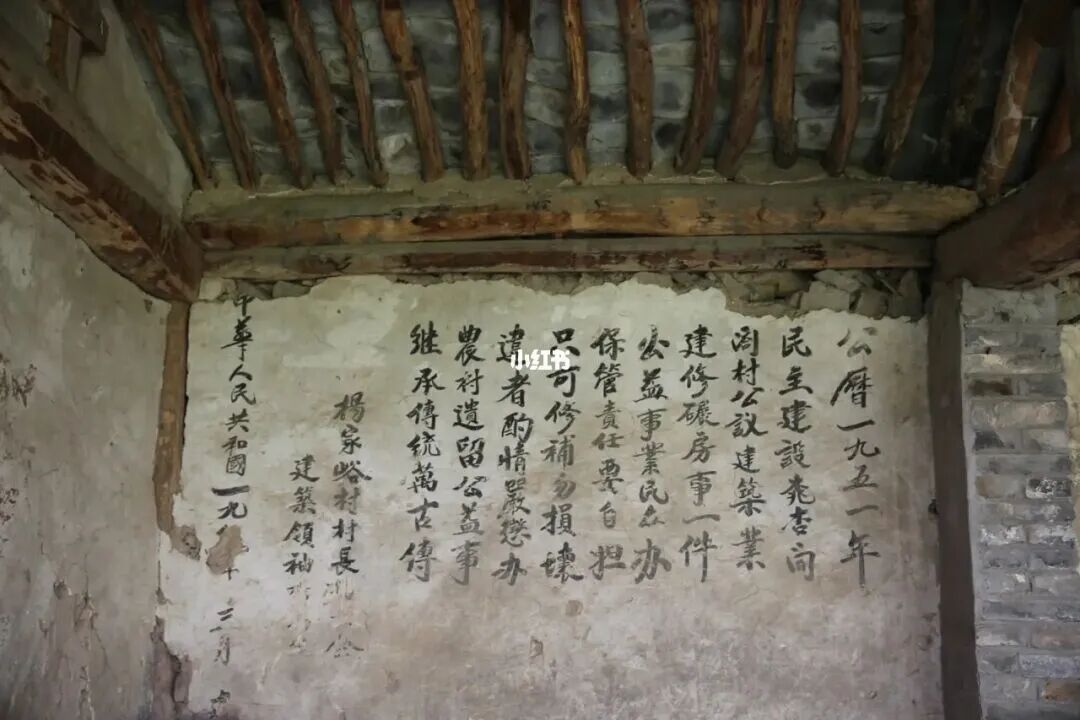 公曆一九五一年
民主建設堯杏向
阁村公议建築業
建修碾房事一件
公益事業民众办
保管責任要自担
只可修補勿損壞
違者酌情嚴懲办
農村遺留公益事
继承傳统萬古傳
楊家峪村村長
建築領袖
中華人民共和國一九 十 三月
小红书